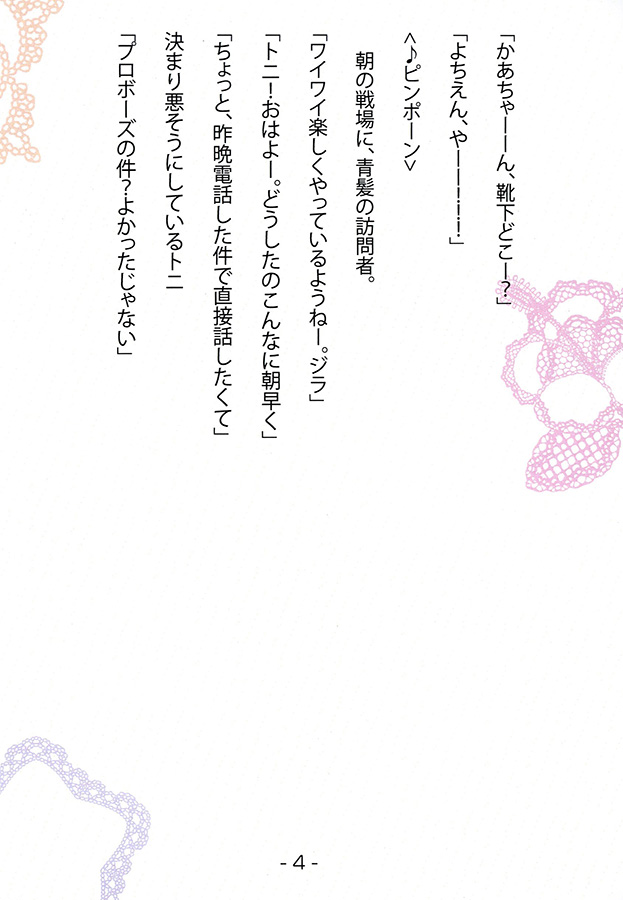 「かあちゃーーん、靴下どこー？」
「よちえん、やーーー！！」
<♪ピンポーン>
朝の戦場に、青髪の訪問者。
「ワイワイ楽しくやっているようねー。ジラ」
「トニ！おはよー。どうしたのこんなに朝早く」
「ちょっと、昨晩電話した件で直接話したくて」
決まり悪そうにしているトニ
「プロポーズの件？よかったじゃない」
- 4 -